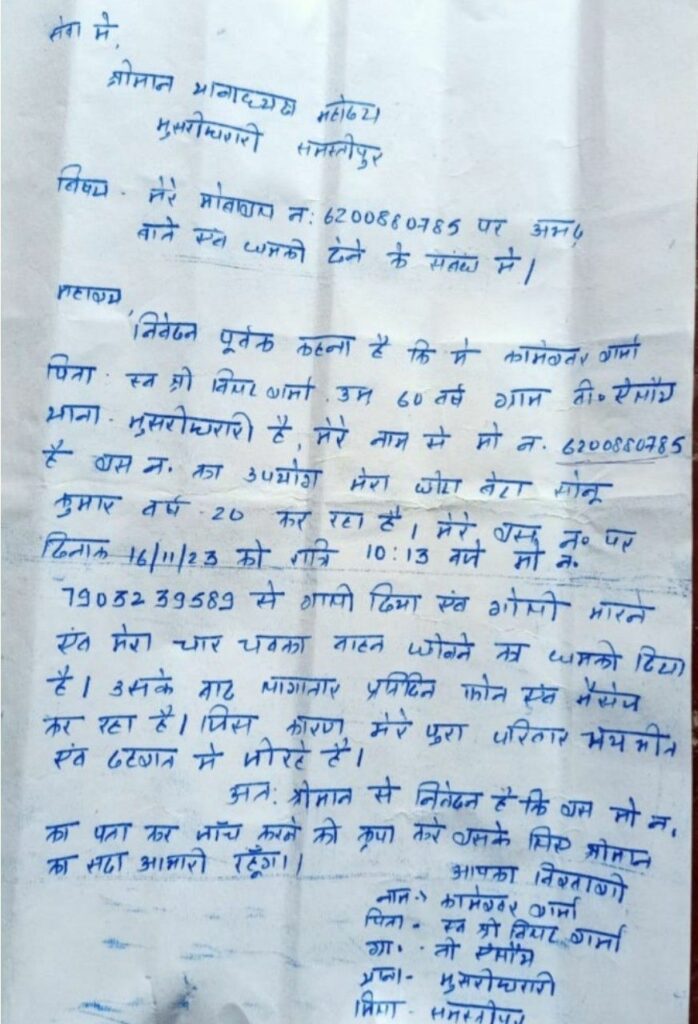 सेवा मे,
श्रीमान थानाध्यक्ष महोदय
मुसरीघरारी समस्तीपुर
विषय - मेरे मोबाइल न: 6200880785 पर
वाते एंव धमकी देने के संबंध मे।
महाशय,
निवेदन पूर्वक कहना है कि मे कामेश्वर शर्मा
पिता - स्व श्री विपट शर्मा उम्र 60 वर्ष ग्राम
थाना - मुसरीघरारी है, मेरे नाम से मो न. 6200880785
है इस न. का उपयोग मेरा छोटा बेटा सोनू
कुमार वर्ष 20 कर रहा है। मेरे इस न० पर
दिनांक 16/11/23 को रात्रि 10:13 बजे मो न.
7903239589 से गाली दिया एंव गोली मारने
एंव मेरा चार चक्का वाहन छीनने का धमकी दिया
है। उसके बाद लागातार प्रतिदिन फोन एंव मैसेज
कर रहा है। जिस कारण मेरे पुरा परिवार भयभीत
एंव दहशत मे जी रहे है।
अत: श्रीमान से निवेदन है कि इस मो न.
का पता कर जाँच करने की कृपा करे इसके लिए श्रीमान
का सदा आभारी रहूँगा।
आपका विश्वासी
नाम → कामेश्वर शर्मा
पिता - स्व श्री विपट शर्मा
ग्रा. -
थाना - मुसरीघरारी
जिला - समस्तीपुर